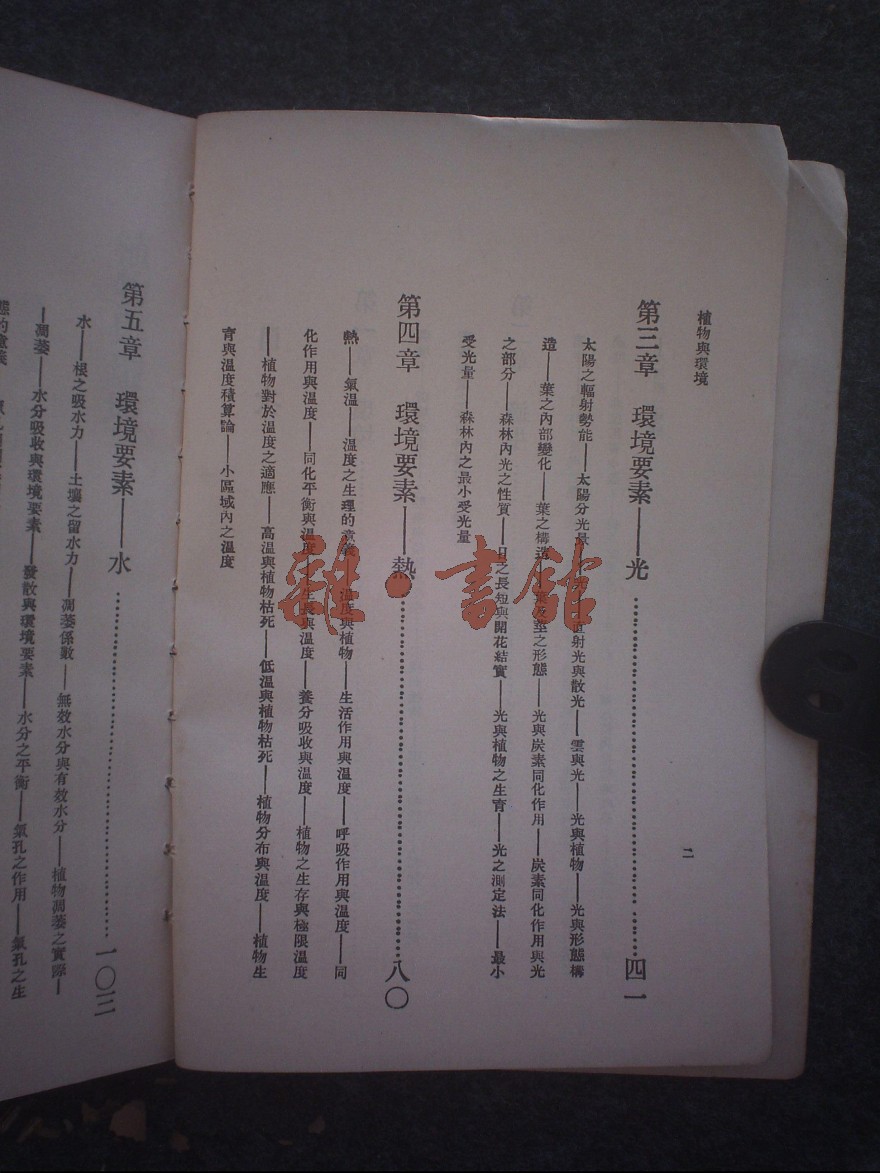 植物與環境
二
第三章　環境要素——光……四一
太陽之輻射勢能——太陽分光景——直射光與散光——雲與光——光與植物——光與形態構
造——葉之內部變化——葉之構造——葉及莖之形態——光與炭素同化作用——炭素同化作用與光
之部分——森林內光之性質——日之長短與開花結實——光與植物之生育——光之測定法——最小
受光量——森林內之最小受光量
第四章　環境要素——熱……八〇
熱——氣溫——溫度之生理的意義——溫度與植物——生活作用與溫度——呼吸作用與溫度——同
化作用與溫度——同化平衡與溫度——生長與溫度——養分吸收與溫度——植物之生存與極限溫度
——植物對於溫度之適應——高溫與植物枯死——低溫與植物枯死——植物分布與溫度——植物生
育與溫度積算論——小區域內之溫度
第五章　環境要素——水……一〇三
水——根之吸水力——土壤之留水力——凋萎係數——無效水分與有效水分——植物凋萎之實際—
—凋萎——水分吸收與環境要素——發散與環境要素——水分之平衡——氣孔之作用——氣孔之生
態的意義
雜·書館